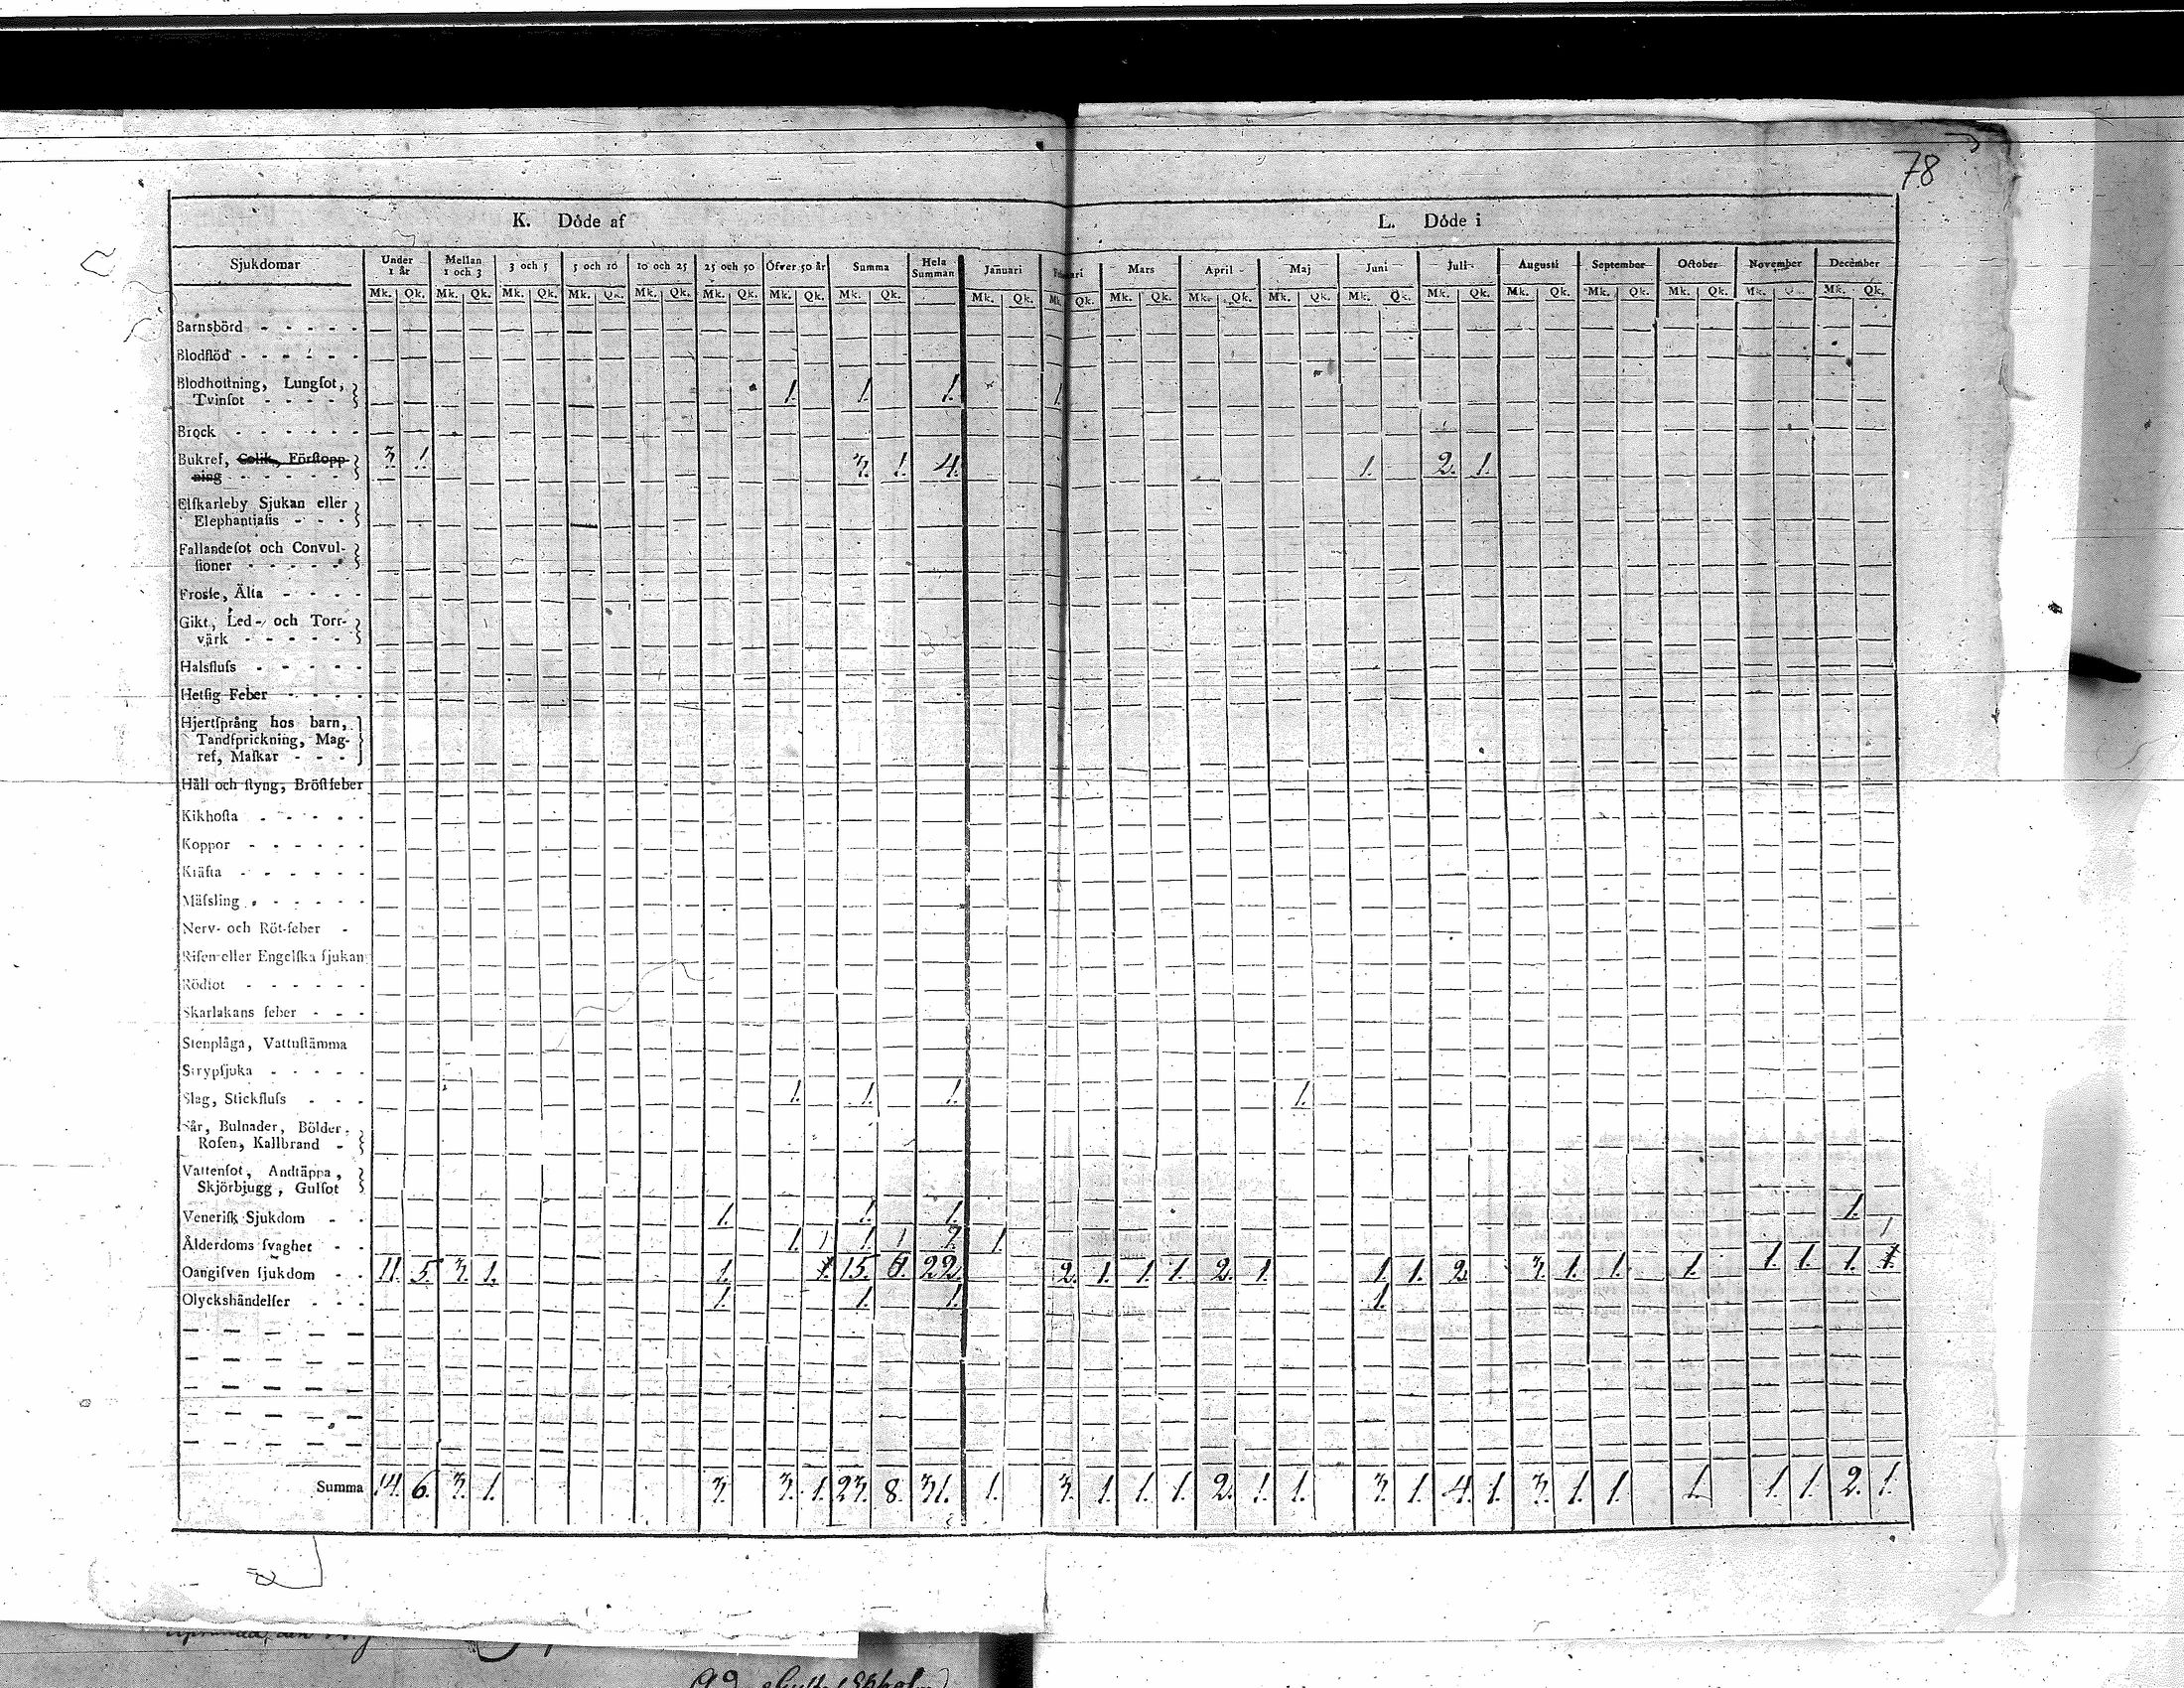 78
K. Döde af
L. Döde i
Sjukdomar Under 1 år Mellan 1 och 3 3 och 5 5 och 10 10 och 25 25 och 50 Öfver 50 år Summa Hela Summan Januari Mars April Maj Juni Juli Augusti September October November December
Mk. Qk. Mk. Qk. Mk. Qk. Mk. Qk. Mk. Qk. Mk. Qk. Mk. Qk. Mk. Qk. Mk. Qk. Mk. Qk. Mk. Qk. Mk. Qk. Mk. Qk. Mk. Qk. Mk. Qk. Mk. Qk. Mk. Qk. Mk. Qk. Mk. Mk. Qk.
Barnsbörd - - - - -
Blodflöd - - - - - -
Blodhostning, Lungſot,
Tvinſot - - - - 1. 1. 1. 1.
Brock - - - - - -
Bukref, Colik, Förſtopp-
ning - - - - - - 3. 1. 3. 1. 4. 1. 2. 1.
Elfkarleby Sjukan eller
Elephantiaſis - - -
Fallandeſot och Convul-
ſioner - - - - -
Frosſe, Älta - - - -
Gikt, Led- och Torr-
värk - - - - -
Halsfluſs - - - - -
Hetſig Feber - - - -
Hjertſprång hos barn,
Tandſprickning, Mag-
ref, Maſkar - - -
Håll och ſtyng, Bröſtfeber
Kikhoſta - - - - -
Koppor - - - - - -
Kräfta - - - - - -
Mäſsling - - - - - -
Nerv- och Röt-feber -
Riſen eller Engelſka ſjukan
Rödſot - - - - - -
Skarlakans feber - - -
Stenplåga, Vattuſtämma
Strypſjuka - - - - -
Slag, Stickfluſs - - - 1. 1. 1. 1.
Sår, Bulnader, Bölder,
Roſen, Kallbrand -
Vattenſot, Andtäppa,
Skjörbjugg, Gulſot
Veneriſk Sjukdom - - 1. 1. 1. 1.
Ålderdoms ſvaghet - - 1. 1 1. 1 2. 1. 1
Oangifven ſjukdom - - 11. 5. 3. 1. 1. 15. 6. 22. 2. 1. 1. 1. 2. 1. 1. 1. 2. 3. 1. 1. 1. 1. 1. 1.
Olyckshändelſer - - - 1. 1. 1. 1.
Summa 14. 6. 3. 1. 3. 3. 1. 23. 8. 31. 1. 3. 1. 1. 1. 2. 1. 1. 3. 1. 4. 1. 3. 1. 1. 1. 1. 1. 2. 1.